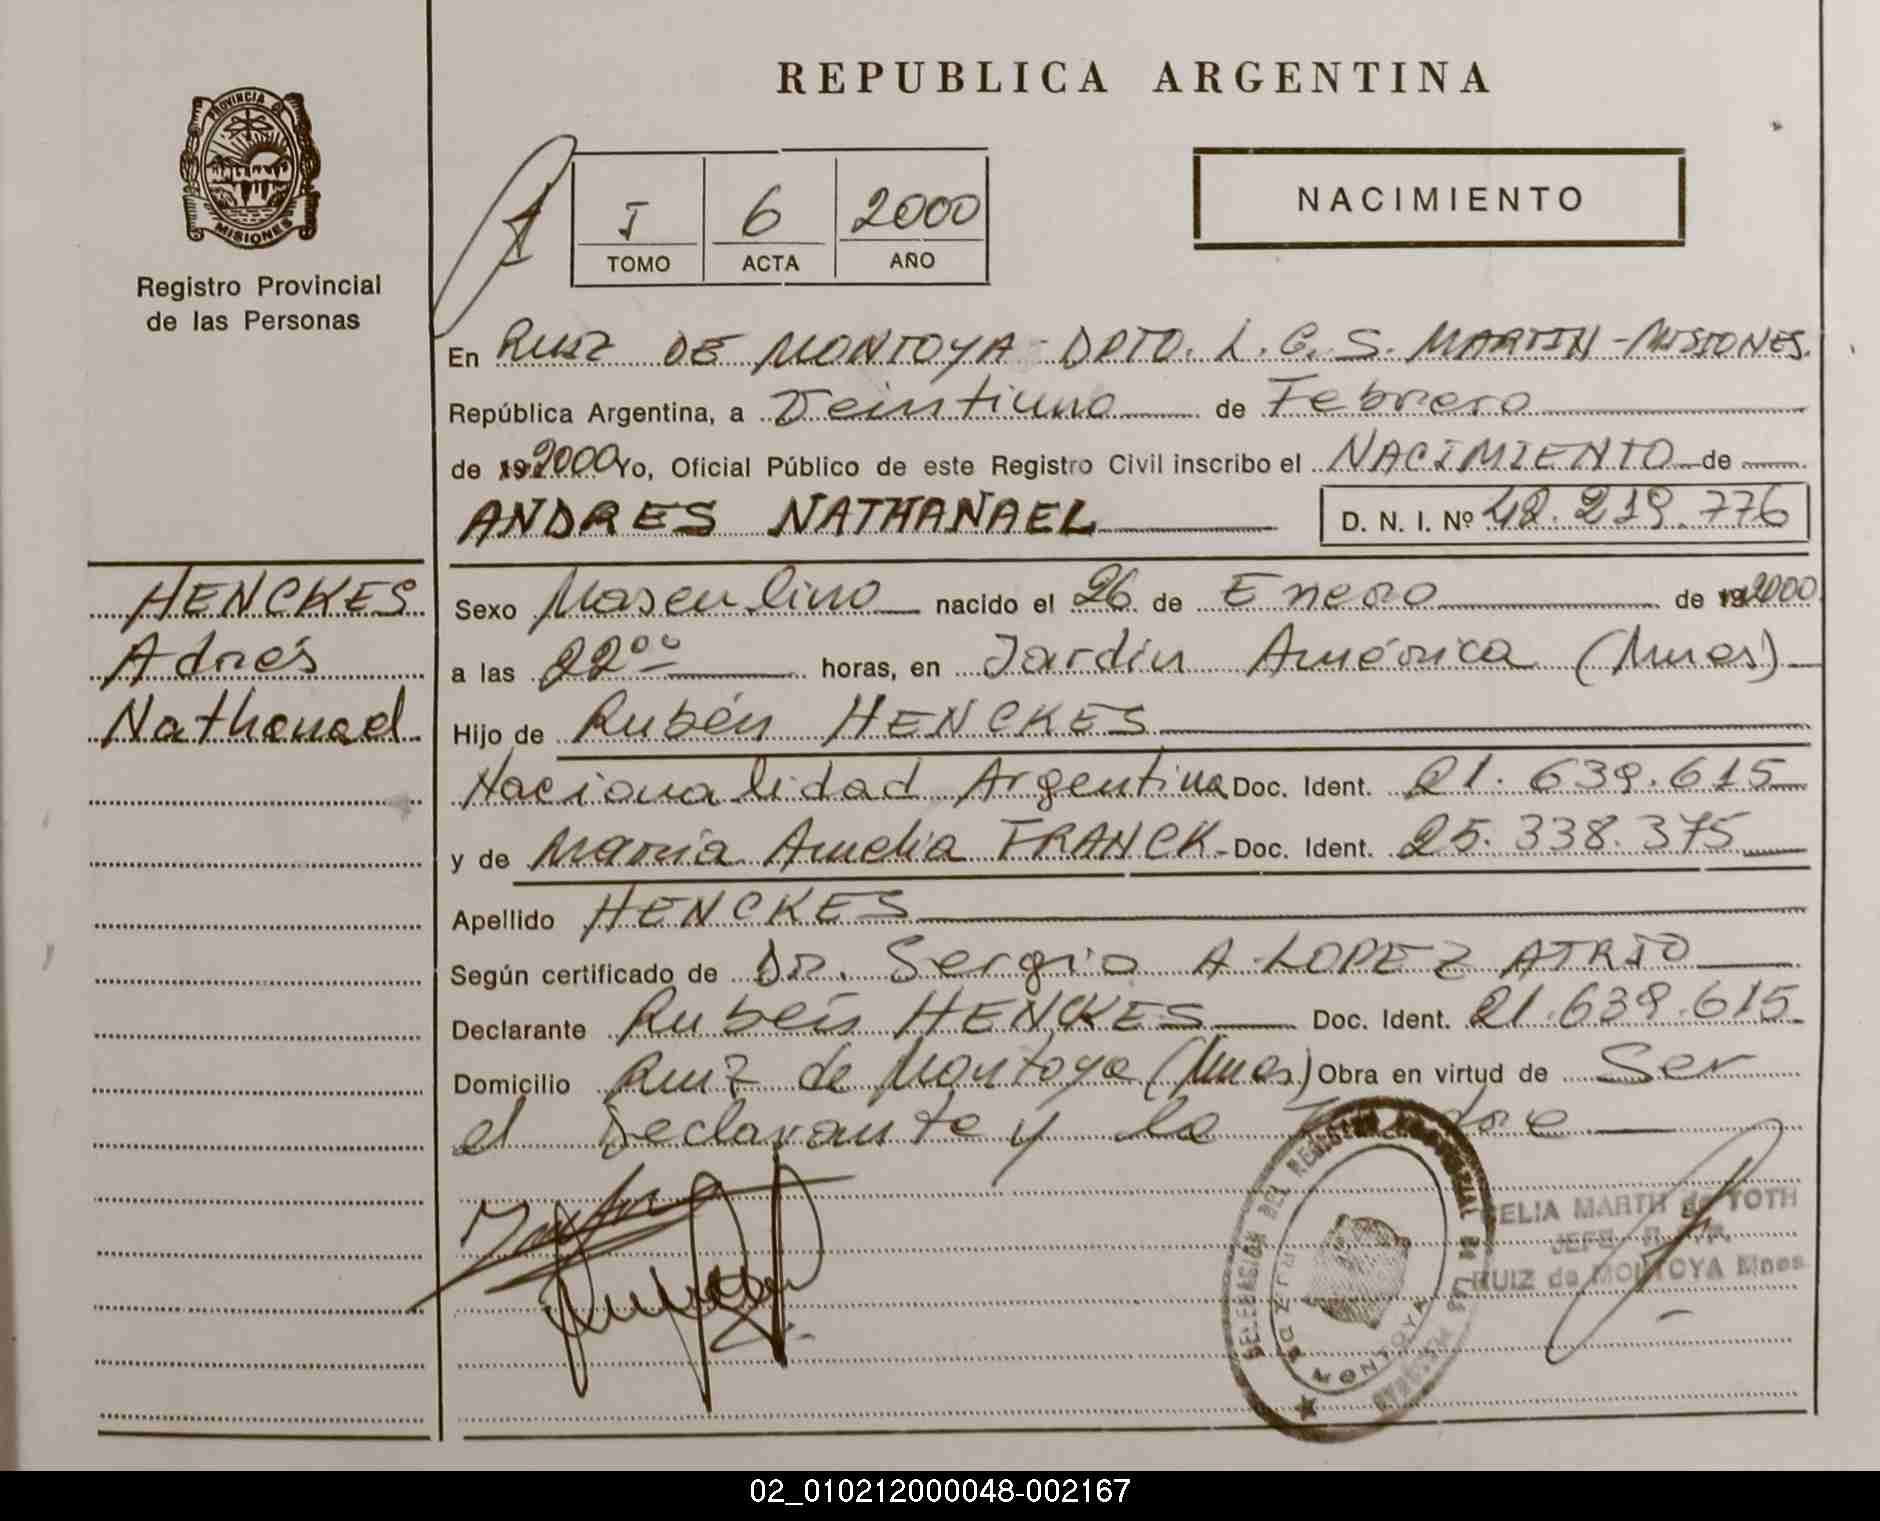 REPUBLICA ARGENTINA
PROVINCIA DE
MISIONES
Registro Provincial
de las Personas
I 6 2000
TOMO ACTA AÑO
NACIMIENTO
En RUIZ DE MONTOYA - DPTO. L. G. S. MARTIN - MISIONES.
República Argentina, a Veintiuno de Febrero
de 19 2000 Yo, Oficial Público de este Registro Civil inscribo el NACIMIENTO de
ANDRES NATHANAEL D. N. I. Nº 42.219.776
HENCKES
Adrés
Nathanael
Sexo Masculino nacido el 26 de Enero de 19 2000
a las 22°° horas, en Jardín América (Mnes)
Hijo de Rubén HENCKES
Nacionalidad Argentina Doc. Ident. 21.639.615
y de María Amelia FRANCK - Doc. Ident. 25.338.375
Apellido HENCKES
Según certificado de Dr. Sergio A. LOPEZ ATRIO
Declarante Rubén HENCKES Doc. Ident. 21.639.615
Domicilio Ruiz de Montoya (Mnes) Obra en virtud de Ser
el Declarante y la
DELEGACION DEL REGISTRO PROVINCIAL DE LAS PERSONAS
RUIZ DE MONTOYA
CELIA MARTH de TOTH
JEFE
RUIZ de MONTOYA Mnes
02_010212000048-002167